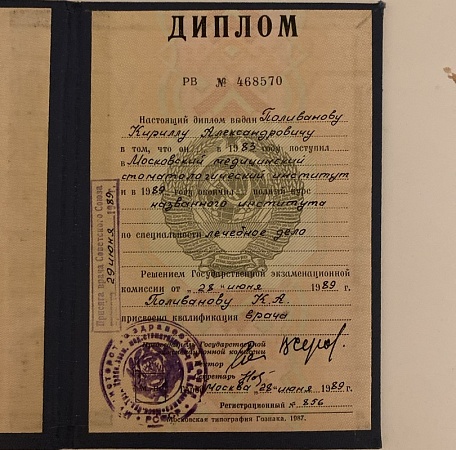 ДИПЛОМ
РВ № 468570
Настоящий диплом выдан Поливанову
Кириллу Александровичу
в том, что он в 1983 году поступил
в Московский медицинский
стоматологический институт
и в 1989 году окончил полный курс
названного института
по специальности лечебное дело
Решением Государственной экзаменационной
комиссии от "28" июня 1989 г.
Поливанову К.А.
присвоена квалификация врача
Председатель Государственной
экзаменационной комиссии
Ректор
Секретарь
Москва "28" июня 1989 г.
Регистрационный № 856
Московская типография Гознака. 1987.
Присяга врача Советского Союза
29 июня 1989г.